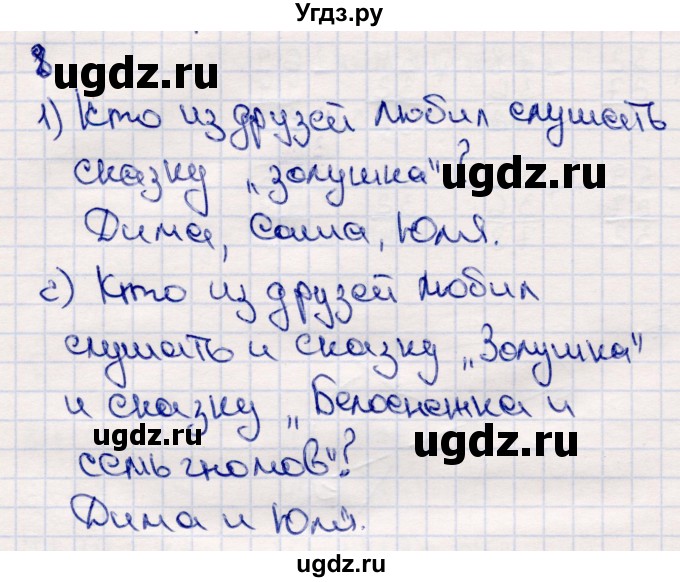 Угдз.ру
8
ugdz.ru
1) Кто из друзей любил слушать
сказку „Золушка"?
ugdz.ru
Дима, Саша, Юля.
2) Кто из друзей любил
слушать и сказку „Золушка"
и сказку „Белоснежка и
ugdz.ru
ugdz.ru
семь гномов"?
Дима и Юля.
ugdz.ru